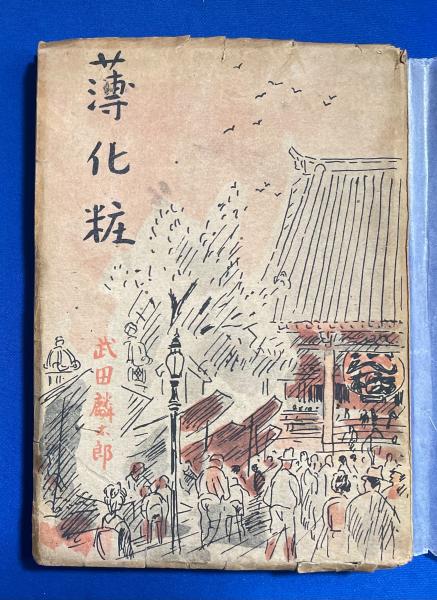 薄化粧
武田麟太郎